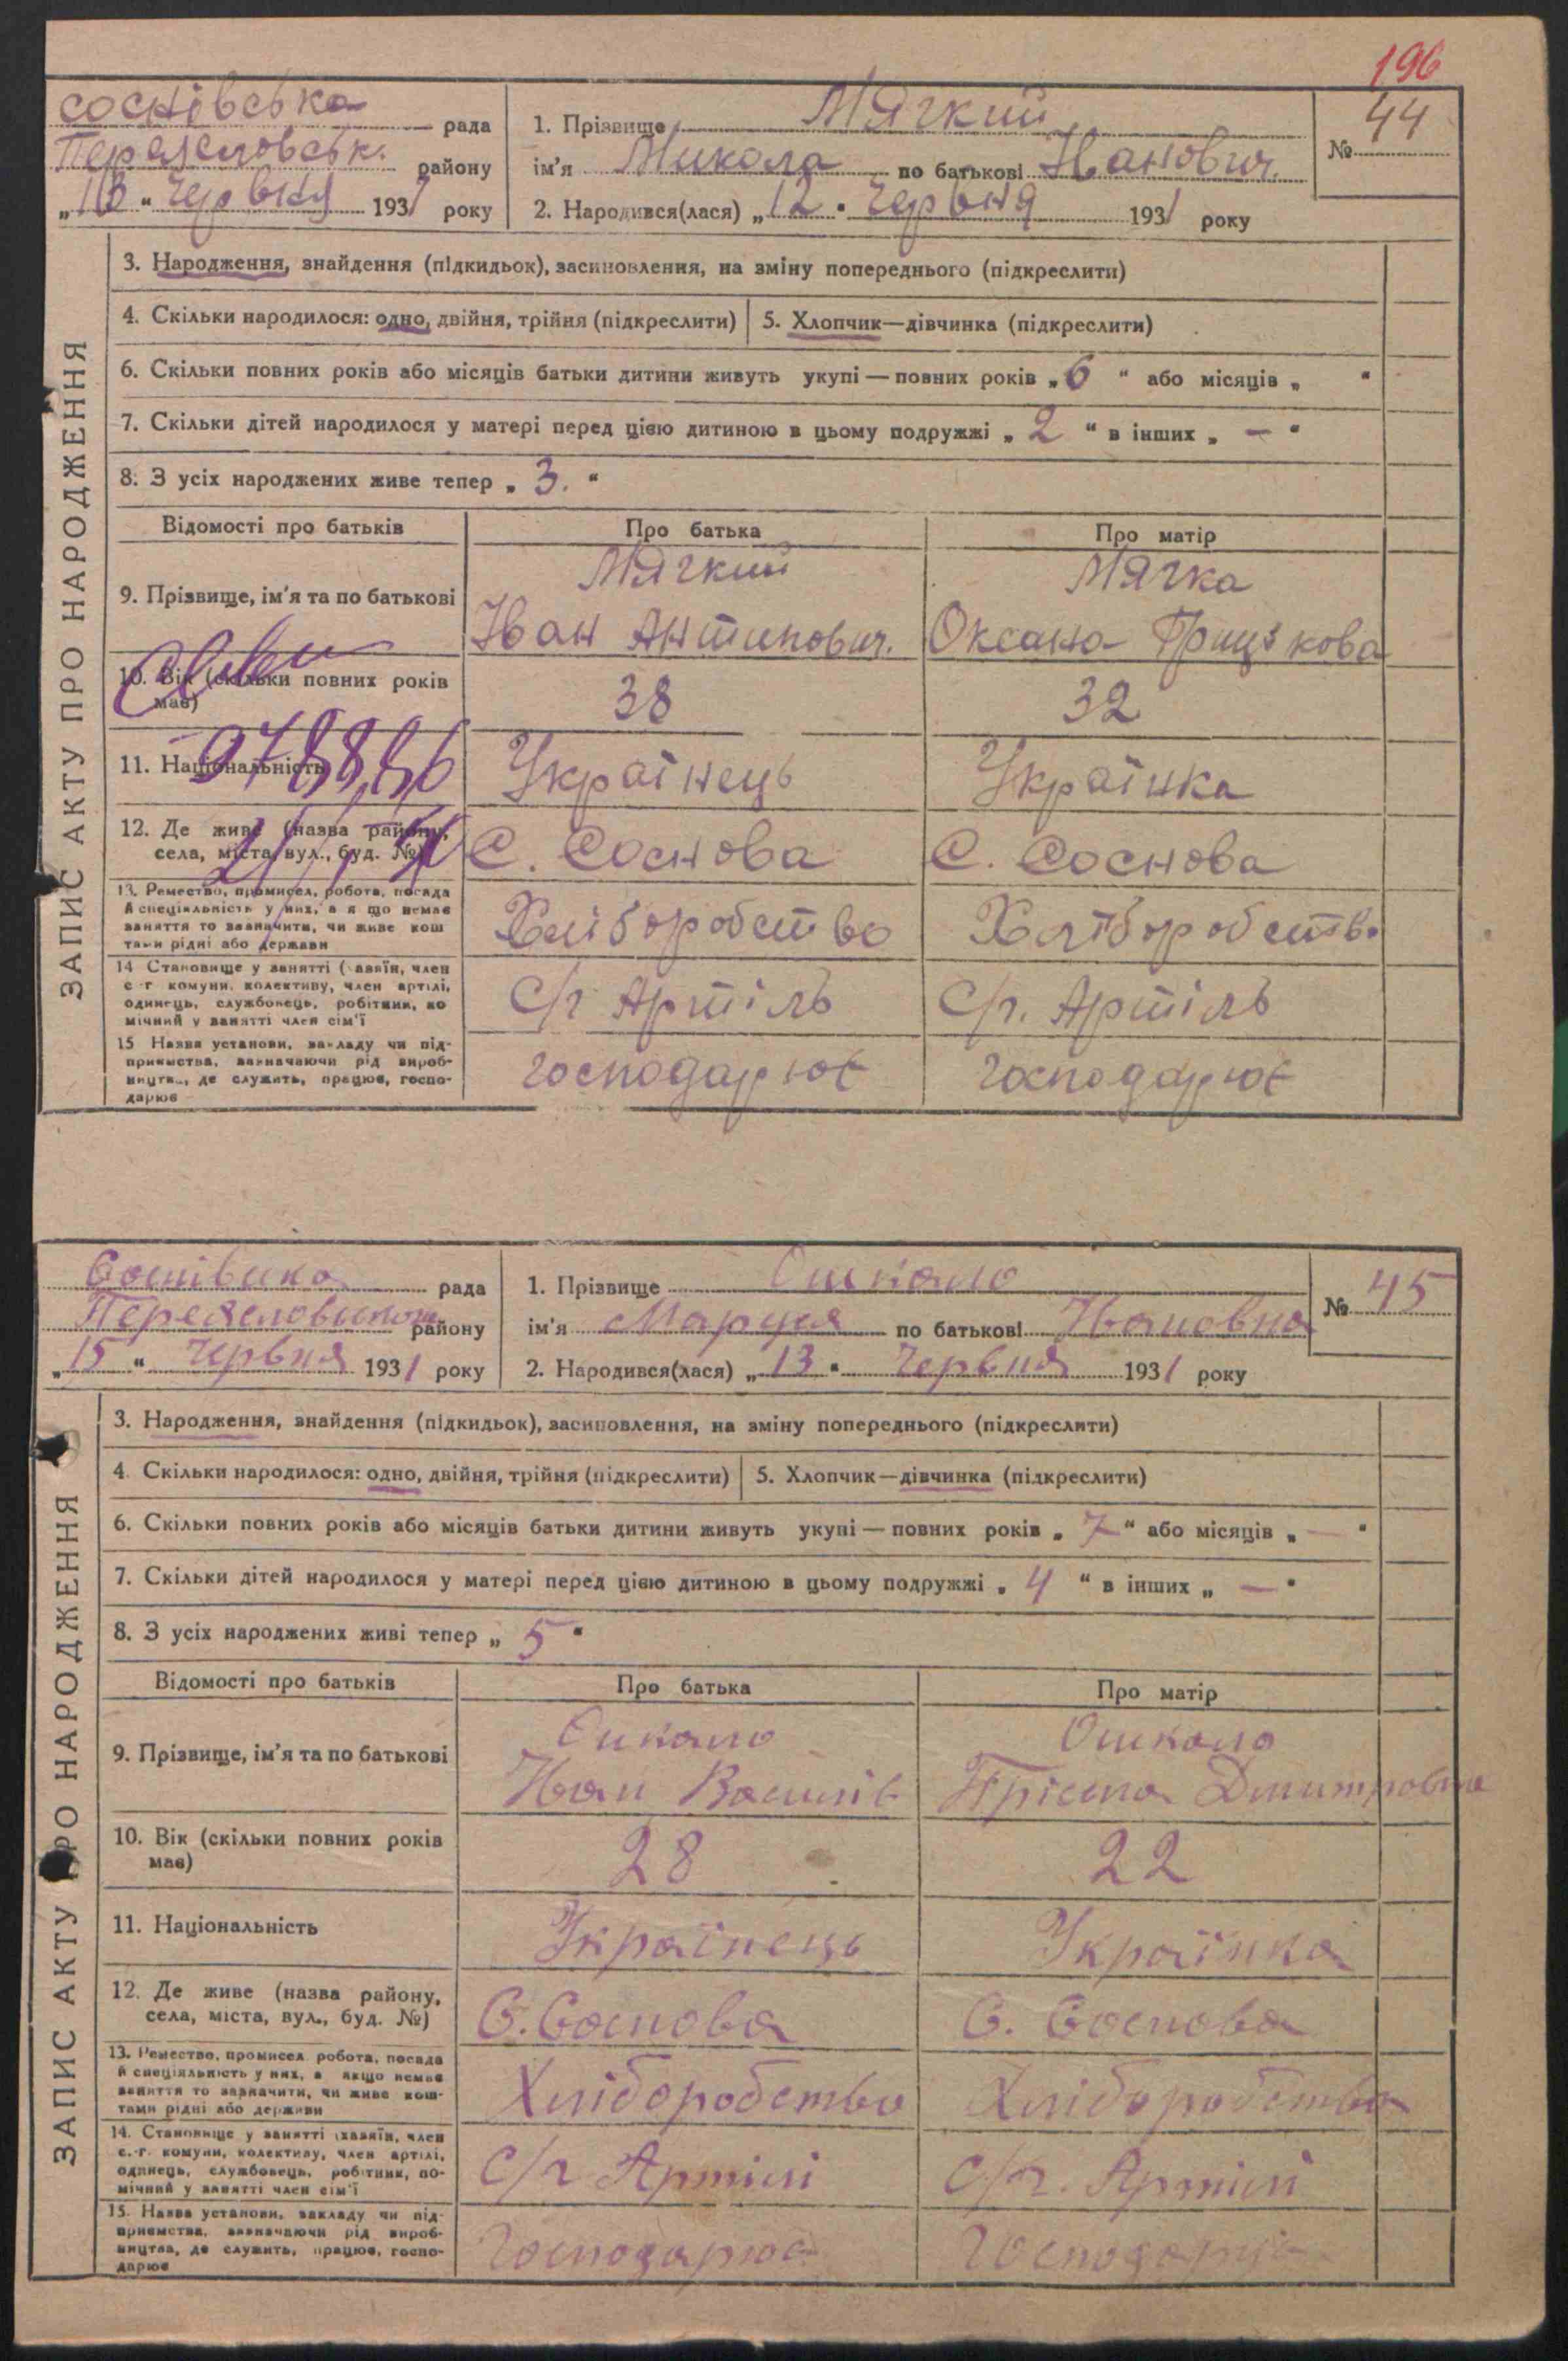 196
Соснівська рада
Переяславськ. району
"13" Червня 1931 року
1. Прізвище Мягкий
ім'я Микола по батькові Іванович.
2. Народився(лася) "12" Червня 1931 року
№ 44
ЗАПИС АКТУ ПРО НАРОДЖЕННЯ
3. Народження, знайдення (підкидьок), засиновлення, на зміну попереднього (підкреслити)
4. Скільки народилося: одно, двійня, трійня (підкреслити) 5. Хлопчик—дівчинка (підкреслити)
6. Скільки повних років або місяців батьки дитини живуть укупі — повних років „ 6 " або місяців „ "
7. Скільки дітей народилося у матері перед цією дитиною в цьому подружжі „ 2 " в інших „ — "
8. З усіх народжених живе тепер „ 3. "
Відомості про батьків Про батька Про матір
9. Прізвище, ім'я та по батькові
Мягкий
Іван Антипович.
Мягка
Оксана Грицькова
10. Вік (скільки повних років має) 38 32
11. Національність Українець Українка
12. Де живе (назва району,
села, міста, вул., буд. №) С. Соснова С. Соснова
13. Ремество, промисел, робота, посада
й спеціяльність у них, а я що немає
заняття то зазначити, чи живе кош
тами рідні або держави
Хліборобство Хліборобство
14 Становище у занятті (хазяїн, член
с-г комуни, колективу, член артілі,
одинець, службовець, робітник, по
мічний у занятті член сім'ї
С/г Артіль С/г. Артіль
15 Назва установи, закладу чи під-
приємства, зазначаючи рід вироб-
ництва, де служить, працює, госпо-
дарює
господарює господарює
Соснівська рада
Переяславського району
"15" Червня 1931 року
1. Прізвище Ошкало
ім'я Маруся по батькові Івановна
2. Народився(лася) "13" Червня 1931 року
№ 45
ЗАПИС АКТУ ПРО НАРОДЖЕННЯ
3. Народження, знайдення (підкидьок), засиновлення, на зміну попереднього (підкреслити)
4. Скільки народилося: одно, двійня, трійня (підкреслити) 5. Хлопчик—дівчинка (підкреслити)
6. Скільки повних років або місяців батьки дитини живуть укупі — повних років „ 7 " або місяців „ — "
7. Скільки дітей народилося у матері перед цією дитиною в цьому подружжі „ 4 " в інших „ — "
8. З усіх народжених живі тепер „ 5 "
Відомості про батьків Про батька Про матір
9. Прізвище, ім'я та по батькові
Ошкало
Іван Василів
Ошкало
Пріська Дмитровна
10. Вік (скільки повних років
має) 28 22
11. Національність Українець Українка
12. Де живе (назва району,
села, міста, вул., буд. №) С. Соснова С. Соснова
13. Ремество, промисел робота, посада
й спеціяльність у них, а якщо немає
заняття то зазначити, чи живе кош-
тами рідні або держави
Хліборобство Хліборобство
14. Становище у занятті (хазяїн, член
с.-г. комуни, колективу, член артілі,
одинець, службовець, робітник, по-
мічний у занятті член сім'ї
С/г Артілі С/г. Артілі
15. Назва установи, закладу чи під-
приємства, зазначаючи рід вироб-
ництва, де служить, працює, госпо-
дарює
Господарює Господарює